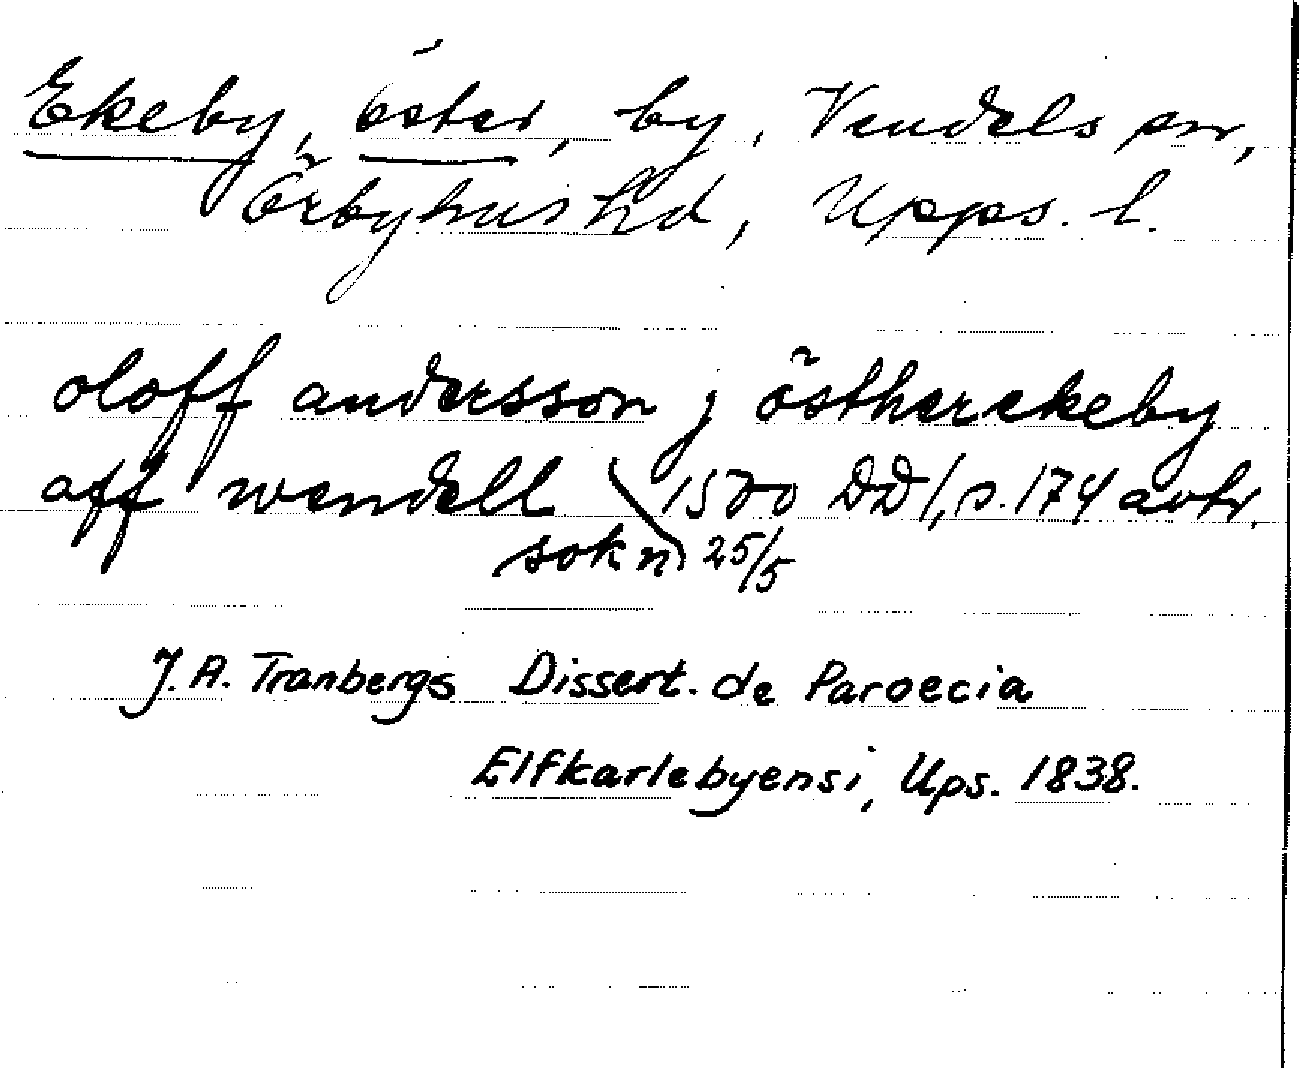 Ekeby, öster, by, Vendels sn,
Örbyhus hd, Upps. l.
oloff andersson j östherekeby
aff wendell 1500 DD1, s. 174 avskr.
sokn 25/5
J. A. Tranbergs Dissert. de Paroecia
Elfkarlebyensi, Ups. 1838.